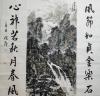 風節如貞金樂石
心神若秋月春風